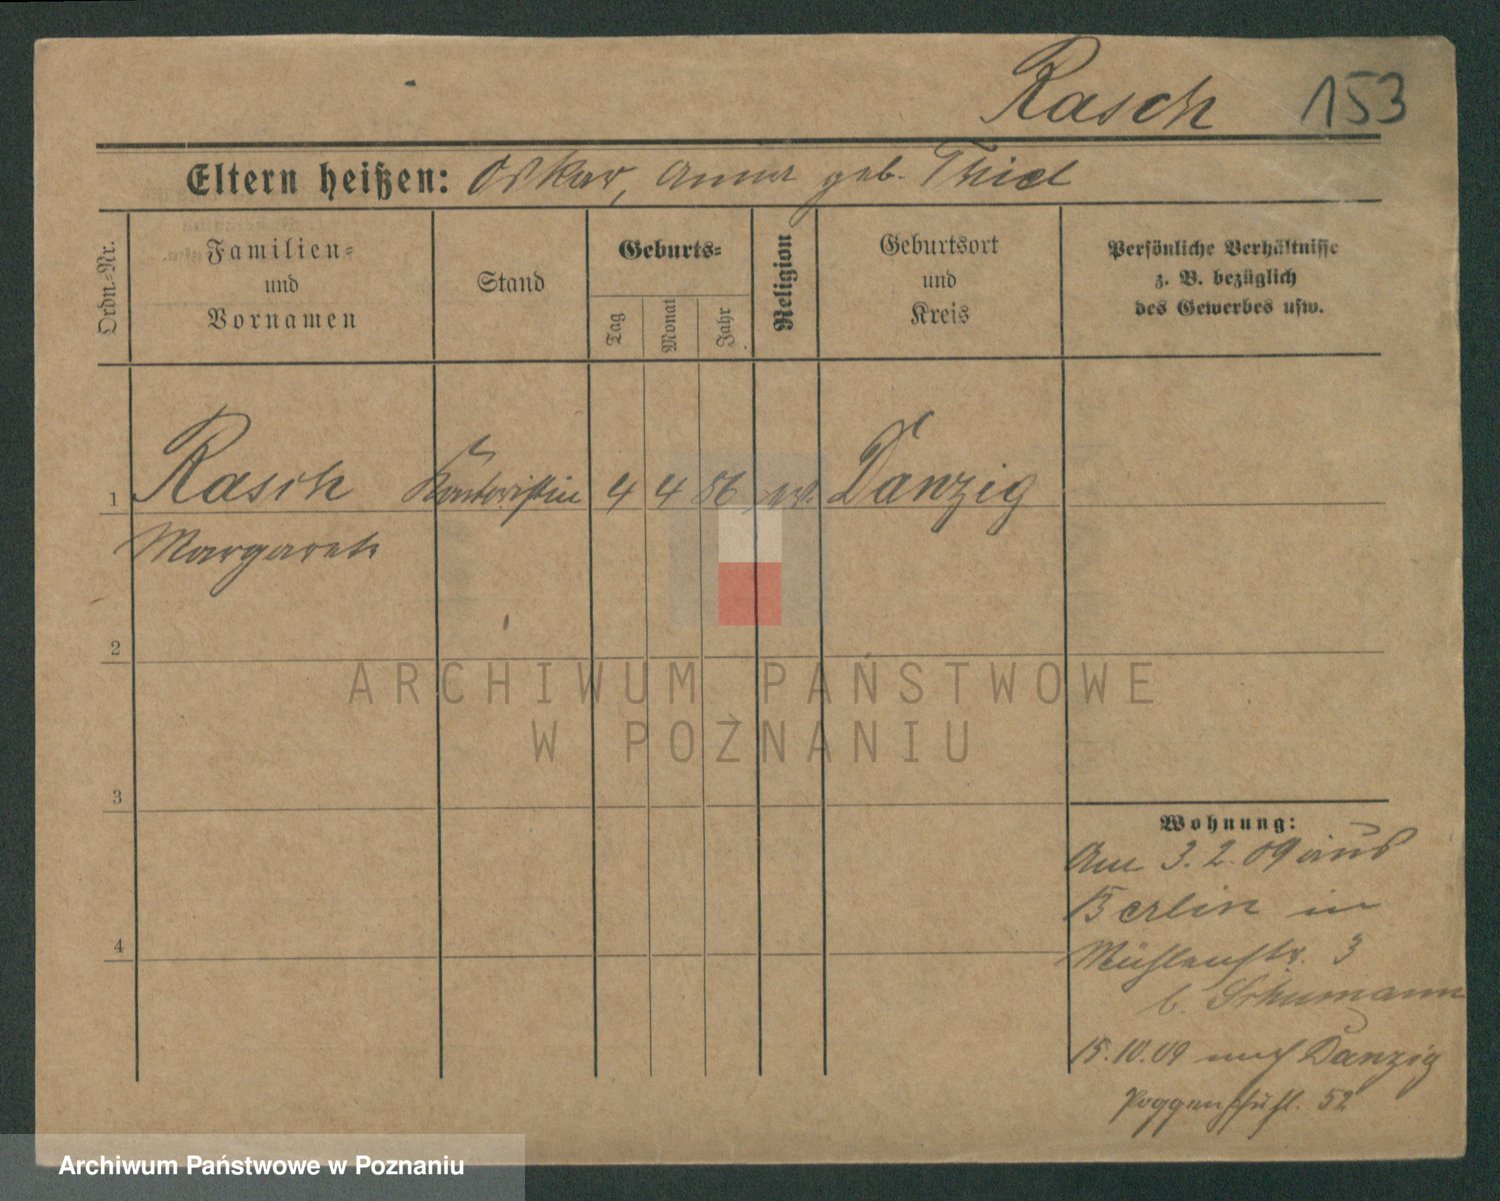 Rasch 153
Eltern heißen: Oskar, Anna geb. Thiel
Ordn.=Nr.
Familien=
und
Vornamen
Stand
Geburts=
Tag
Monat
Jahr
Religion
Geburtsort
und
Kreis
Persönliche Verhältnisse
z. B. bezüglich
des Gewerbes usw.
1 Rasch Kontoristin 4 4 86 ev. Danzig
Margareth
2
ARCHIWUM PAŃSTWOWE
W POZNANIU
3
Wohnung:
Am 3.2.09 aus
Berlin in
4
Mühlenstr. 3
b. Schumann
15.10.09 nach Danzig
Poggenpfuhl. 52
Archiwum Państwowe w Poznaniu